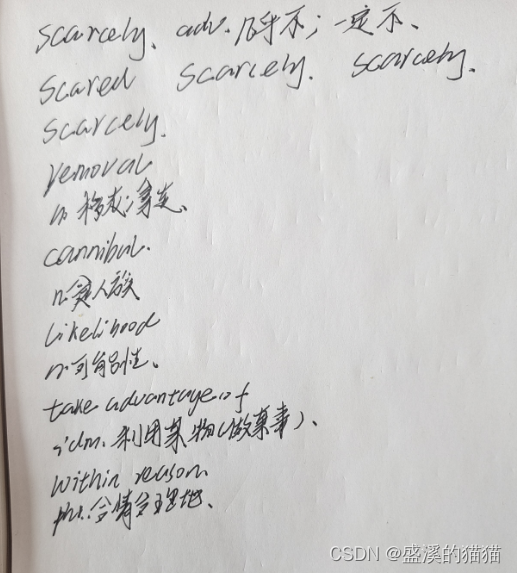 scarcely. adv. 几乎不；一定不、
scared scarcely. scarcely.
scarcely.
removal
n. 移去；拿走、
cannibal.
n. 食人族
likelihood
n. 可能性。
take advantage of
idm. 利用某物（做某事）.
within reason
phr. 合情合理地、
CSDN @盛溪的猫猫